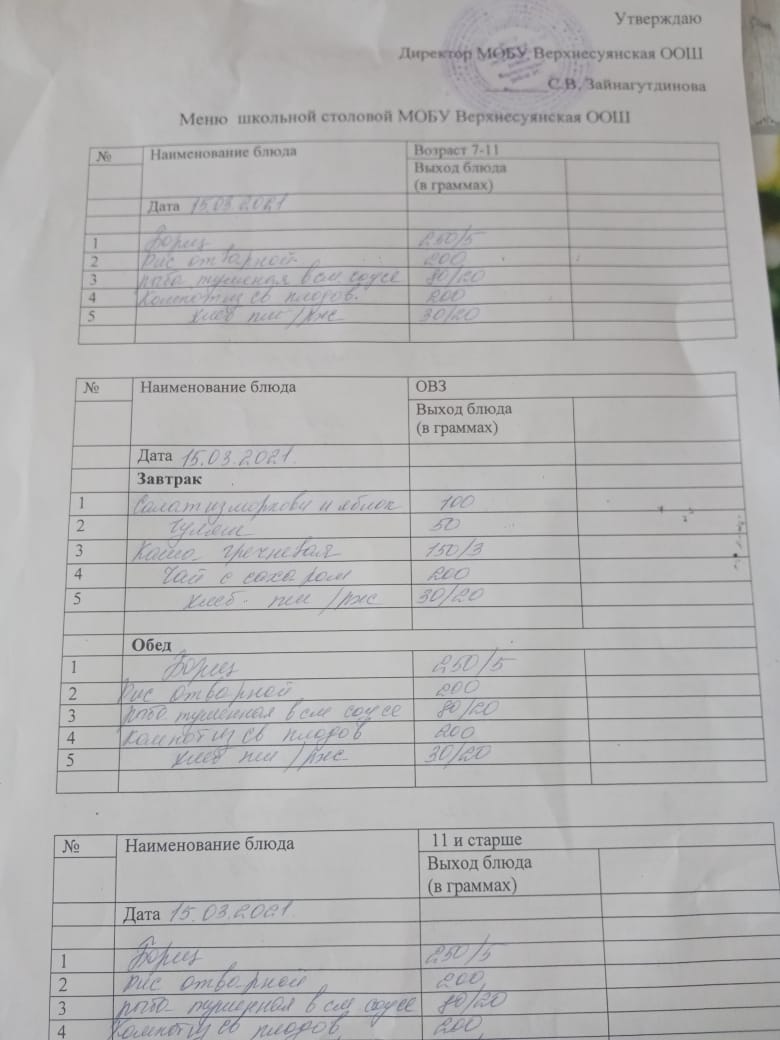 Утверждаю
Директор МОБУ Верхнесуянская ООШ
С.В. Зайнагутдинова
Меню школьной столовой МОБУ Верхнесуянская ООШ
№ Наименование блюда Возраст 7-11
Выход блюда
(в граммах)
Дата 15.03.2021
1 Борщ 250/5
2 Рис отварной 200
3 рыба тушеная в см. соусе 80/20
4 Компот из св плодов. 200
5 хлеб пш/рж 30/20
№ Наименование блюда ОВЗ
Выход блюда
(в граммах)
Дата 15.03.2021
Завтрак
1 Салат из моркови и яблок 100
2 Гуляш 50
3 Каша гречневая 150/3
4 Чай с сахаром 200
5 хлеб пш/рж 30/20
Обед
1 Борщ 250/5
2 Рис отварной 200
3 рыба тушенная в см соусе 80/20
4 Компот из св плодов 200
5 хлеб пш/рж 30/20
№ Наименование блюда 11 и старше
Выход блюда
(в граммах)
Дата 15.03.2021
1 Борщ 250/5
2 Рис отварной 200
3 рыба тушенная в см соусе 80/20
4 Компот из св плодов 200